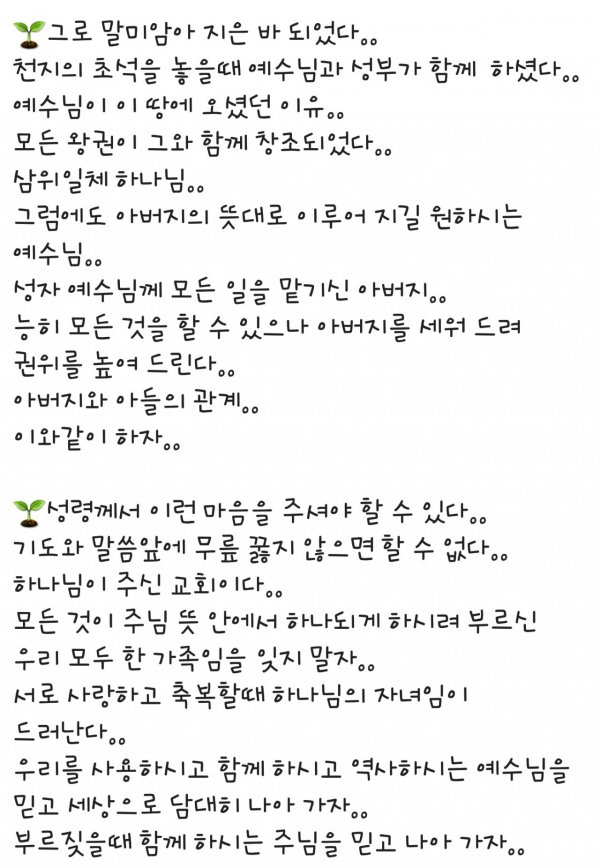 🌱그로 말미암아 지은 바 되었다。。
천지의 초석을 놓을때 예수님과 성부가 함께 하셨다。。
예수님이 이 땅에 오셨던 이유。。
모든 왕권이 그와 함께 창조되었다。。
삼위일체 하나님。。
그럼에도 아버지의 뜻대로 이루어 지길 원하시는
예수님。。
성자 예수님께 모든 일을 맡기신 아버지。。
능히 모든 것을 할 수 있으나 아버지를 세워 드려
권위를 높여 드린다。。
아버지와 아들의 관계。。
이와같이 하자。。
🌱성령께서 이런 마음을 주셔야 할 수 있다。。
기도와 말씀앞에 무릎 꿇지 않으면 할 수 없다。。
하나님이 주신 교회이다。。
모든 것이 주님 뜻 안에서 하나되게 하시려 부르신
우리 모두 한 가족임을 잊지 말자。。
서로 사랑하고 축복할때 하나님의 자녀임이
드러난다。。
우리를 사용하시고 함께 하시고 역사하시는 예수님을
믿고 세상으로 담대히 나아 가자。。
부르짖을때 함께 하시는 주님을 믿고 나아 가자。。